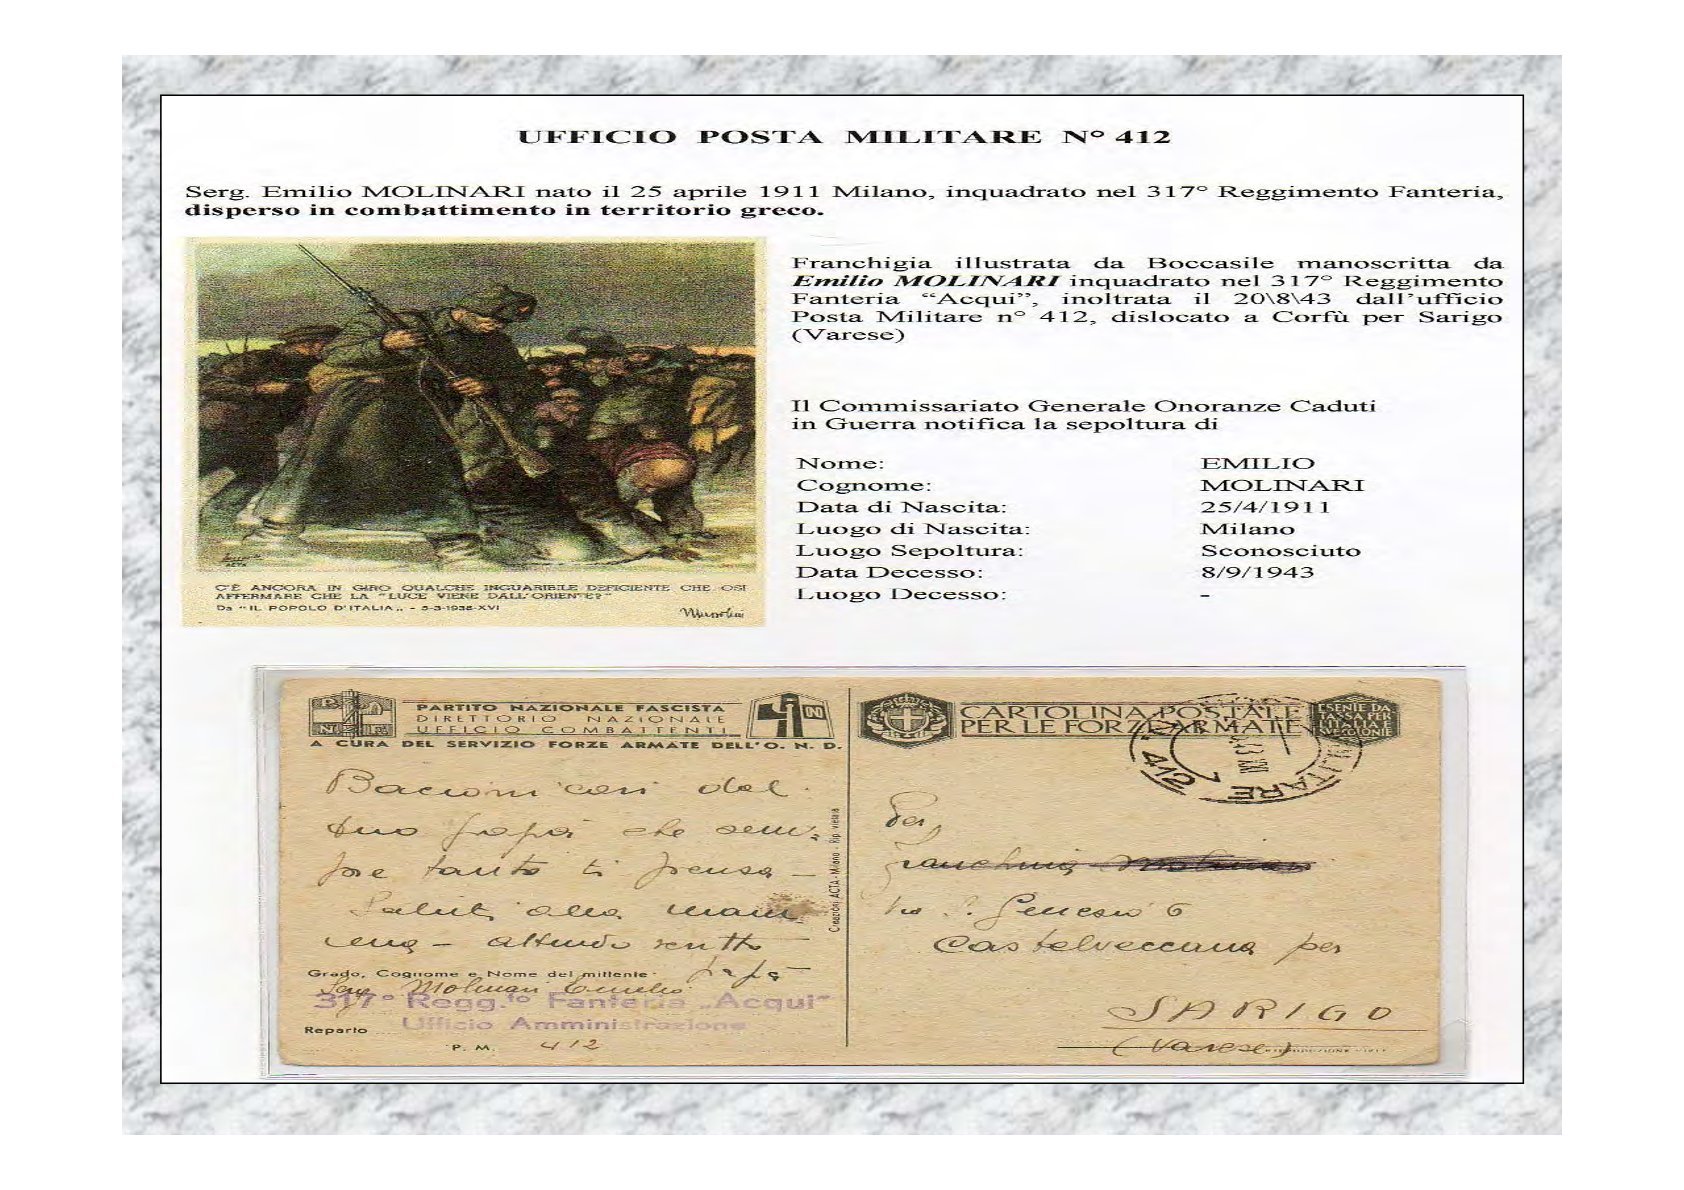 UFFICIO POSTA MILITARE N° 412
Serg. Emilio MOLINARI nato il 25 aprile 1911 Milano, inquadrato nel 317° Reggimento Fanteria,
disperso in combattimento in territorio greco.
Franchigia illustrata da Boccasile manoscritta da
Emilio MOLINARI inquadrato nel 317° Reggimento
Fanteria “Acqui”, inoltrata il 20\8\43 dall’ufficio
Posta Militare n° 412, dislocato a Corfù per Sarigo
(Varese)
Il Commissariato Generale Onoranze Caduti
in Guerra notifica la sepoltura di
Nome: EMILIO
Cognome: MOLINARI
Data di Nascita: 25/4/1911
Luogo di Nascita: Milano
Luogo Sepoltura: Sconosciuto
Data Decesso: 8/9/1943
Luogo Decesso: -
C'È ANCORA IN GIRO QUALCHE INGUARIBILE DEFICIENTE CHE OSI
AFFERMARE CHE LA "LUCE VIENE DALL'ORIENTE?"
Da "IL POPOLO D'ITALIA" - 5-3-1938-XVI
Mussolini
P N F
PARTITO NAZIONALE FASCISTA
DIRETTORIO NAZIONALE
UFFICIO COMBATTENTI
A CURA DEL SERVIZIO FORZE ARMATE DELL'O. N. D.
Bacioni cari dal
tuo papà che sem-
pre tanto ti pensa -
Saluti alla mam
- attendo scritto
papà
Grado, Cognome e Nome del mittente
Serg Molinari Emilio
317° Regg.to Fanteria „Acqui"
Ufficio Amministrazione
Reparto
P. M. 412
Creazioni ACTA - Milano - Rip. vietata
CARTOLINA POSTALE
PER LE FORZE ARMATE
ESENTE DA
TASSA PER
L'ITALIA E
412
Per,
Franchina Molinari
S. Genesio 6
Castelveccana per
SARIGO
(Varese)